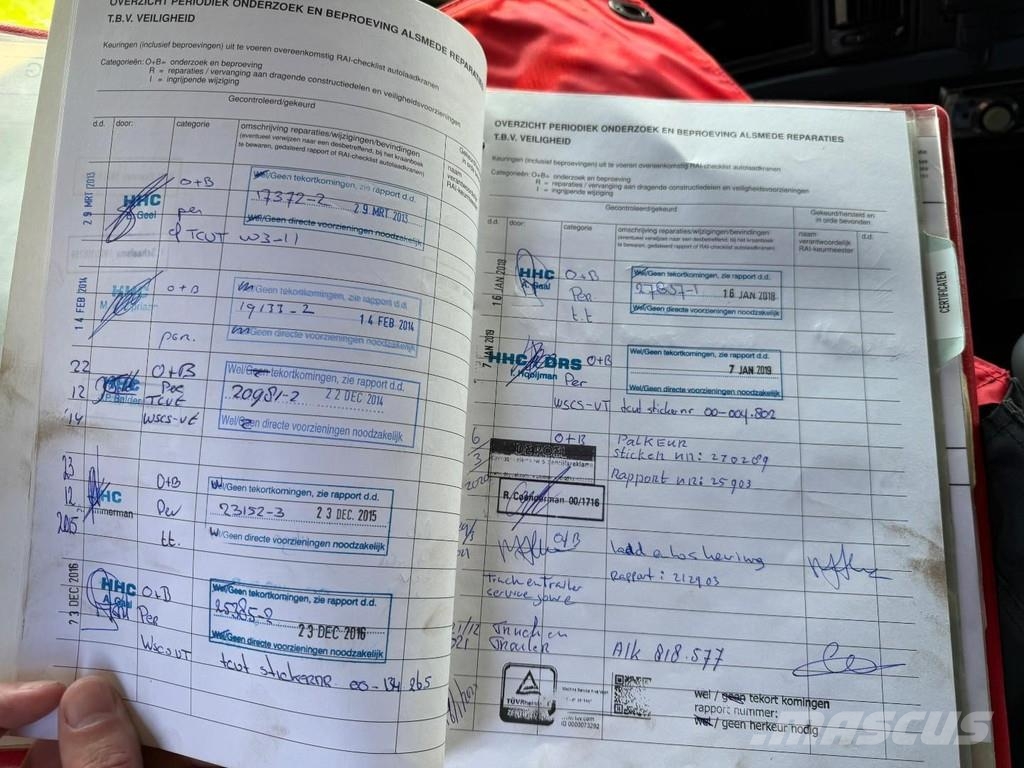 OVERZICHT PERIODIEK ONDERZOEK EN BEPROEVING ALSMEDE REPARATIES
T.B.V. VEILIGHEID
Keuringen (inclusief beproevingen) uit te voeren overeenkomstig RAI-checklist autolaadkranen
Categorieën: O+B= onderzoek en beproeving
R = reparaties / vervanging aan dragende constructiedelen en veiligheidsvoorzieningen
I = ingrijpende wijziging
Gecontroleerd/gekeurd
d.d. door: categorie omschrijving reparaties/wijzigingen/bevindingen
(eventueel verwijzen naar een desbetreffend, bij het kraanboek
te bewaren, gedateerd rapport of RAI-checklist autolaadkranen)
29 MRT 2013
HHC
O+B
Wel/Geen tekortkomingen, zie rapport d.d.
17372-2 29 MRT 2013
Wel/Geen directe voorzieningen noodzakelijk
per
TCUT W3-11
14 FEB 2014
O+B
Wel/Geen tekortkomingen, zie rapport d.d.
19133-2 14 FEB 2014
Wel/Geen directe voorzieningen noodzakelijk
per.
22
12
'14
O+B
Per
TCUT
WSCS-VT
Wel/Geen tekortkomingen, zie rapport d.d.
20981-2 22 DEC 2014
Wel/Geen directe voorzieningen noodzakelijk
23
12
2015
HHC
O+B
Per
tt.
Wel/Geen tekortkomingen, zie rapport d.d.
23152-3 23 DEC. 2015
Wel/Geen directe voorzieningen noodzakelijk
23 DEC 2016
HHC
A. Gaal
O+B
Per
WSCS VT
Wel/Geen tekortkomingen, zie rapport d.d.
25385-2
23 DEC 2016
Wel/Geen directe voorzieningen noodzakelijk
tcvt stickernr. 00-134 265
OVERZICHT PERIODIEK ONDERZOEK EN BEPROEVING ALSMEDE REPARATIES
T.B.V. VEILIGHEID
Keuringen (inclusief beproevingen) uit te voeren overeenkomstig RAI-checklist autolaadkranen
Categorieën: O+B= onderzoek en beproeving
R = reparaties / vervanging aan dragende constructiedelen en veiligheidsvoorzieningen
I = ingrijpende wijziging
Gecontroleerd/gekeurd
Gekeurd/hersteld en
in orde bevonden
d.d. door: categorie omschrijving reparaties/wijzigingen/bevindingen
(eventueel verwijzen naar een desbetreffend, bij het kraanboek
te bewaren, gedateerd rapport of RAI-checklist autolaadkranen)
naam
verantwoordelijk
RAI-keurmeester
d.d.
16 JAN 2018
HHC
A. Gaal
O+B
Per
t.t
Wel/Geen tekortkomingen, zie rapport d.d.
27857-1 16 JAN 2018
Wel/Geen directe voorzieningen noodzakelijk
7 JAN 2019
HHC DRS
Hooijman
O+B
Per
WSCS-VT
Wel/Geen tekortkomingen, zie rapport d.d.
7 JAN 2019
Wel/Geen directe voorzieningen noodzakelijk
tcvt stickernr 00-004.802
6
3
2020
O+B
PalKEUR
Sticker nr: 270289
Rapport nr: 25903
00/1716
laadklepkeuring
Rapport: 212903
Truck en trailer
Truck en
Trailer
Alk 818.577
TÜVRheinland
ID 0000073292
wel / geen tekort komingen
rapport nummer:
wel / geen herkeur nodig
CERTIFICATEN
MASCUS